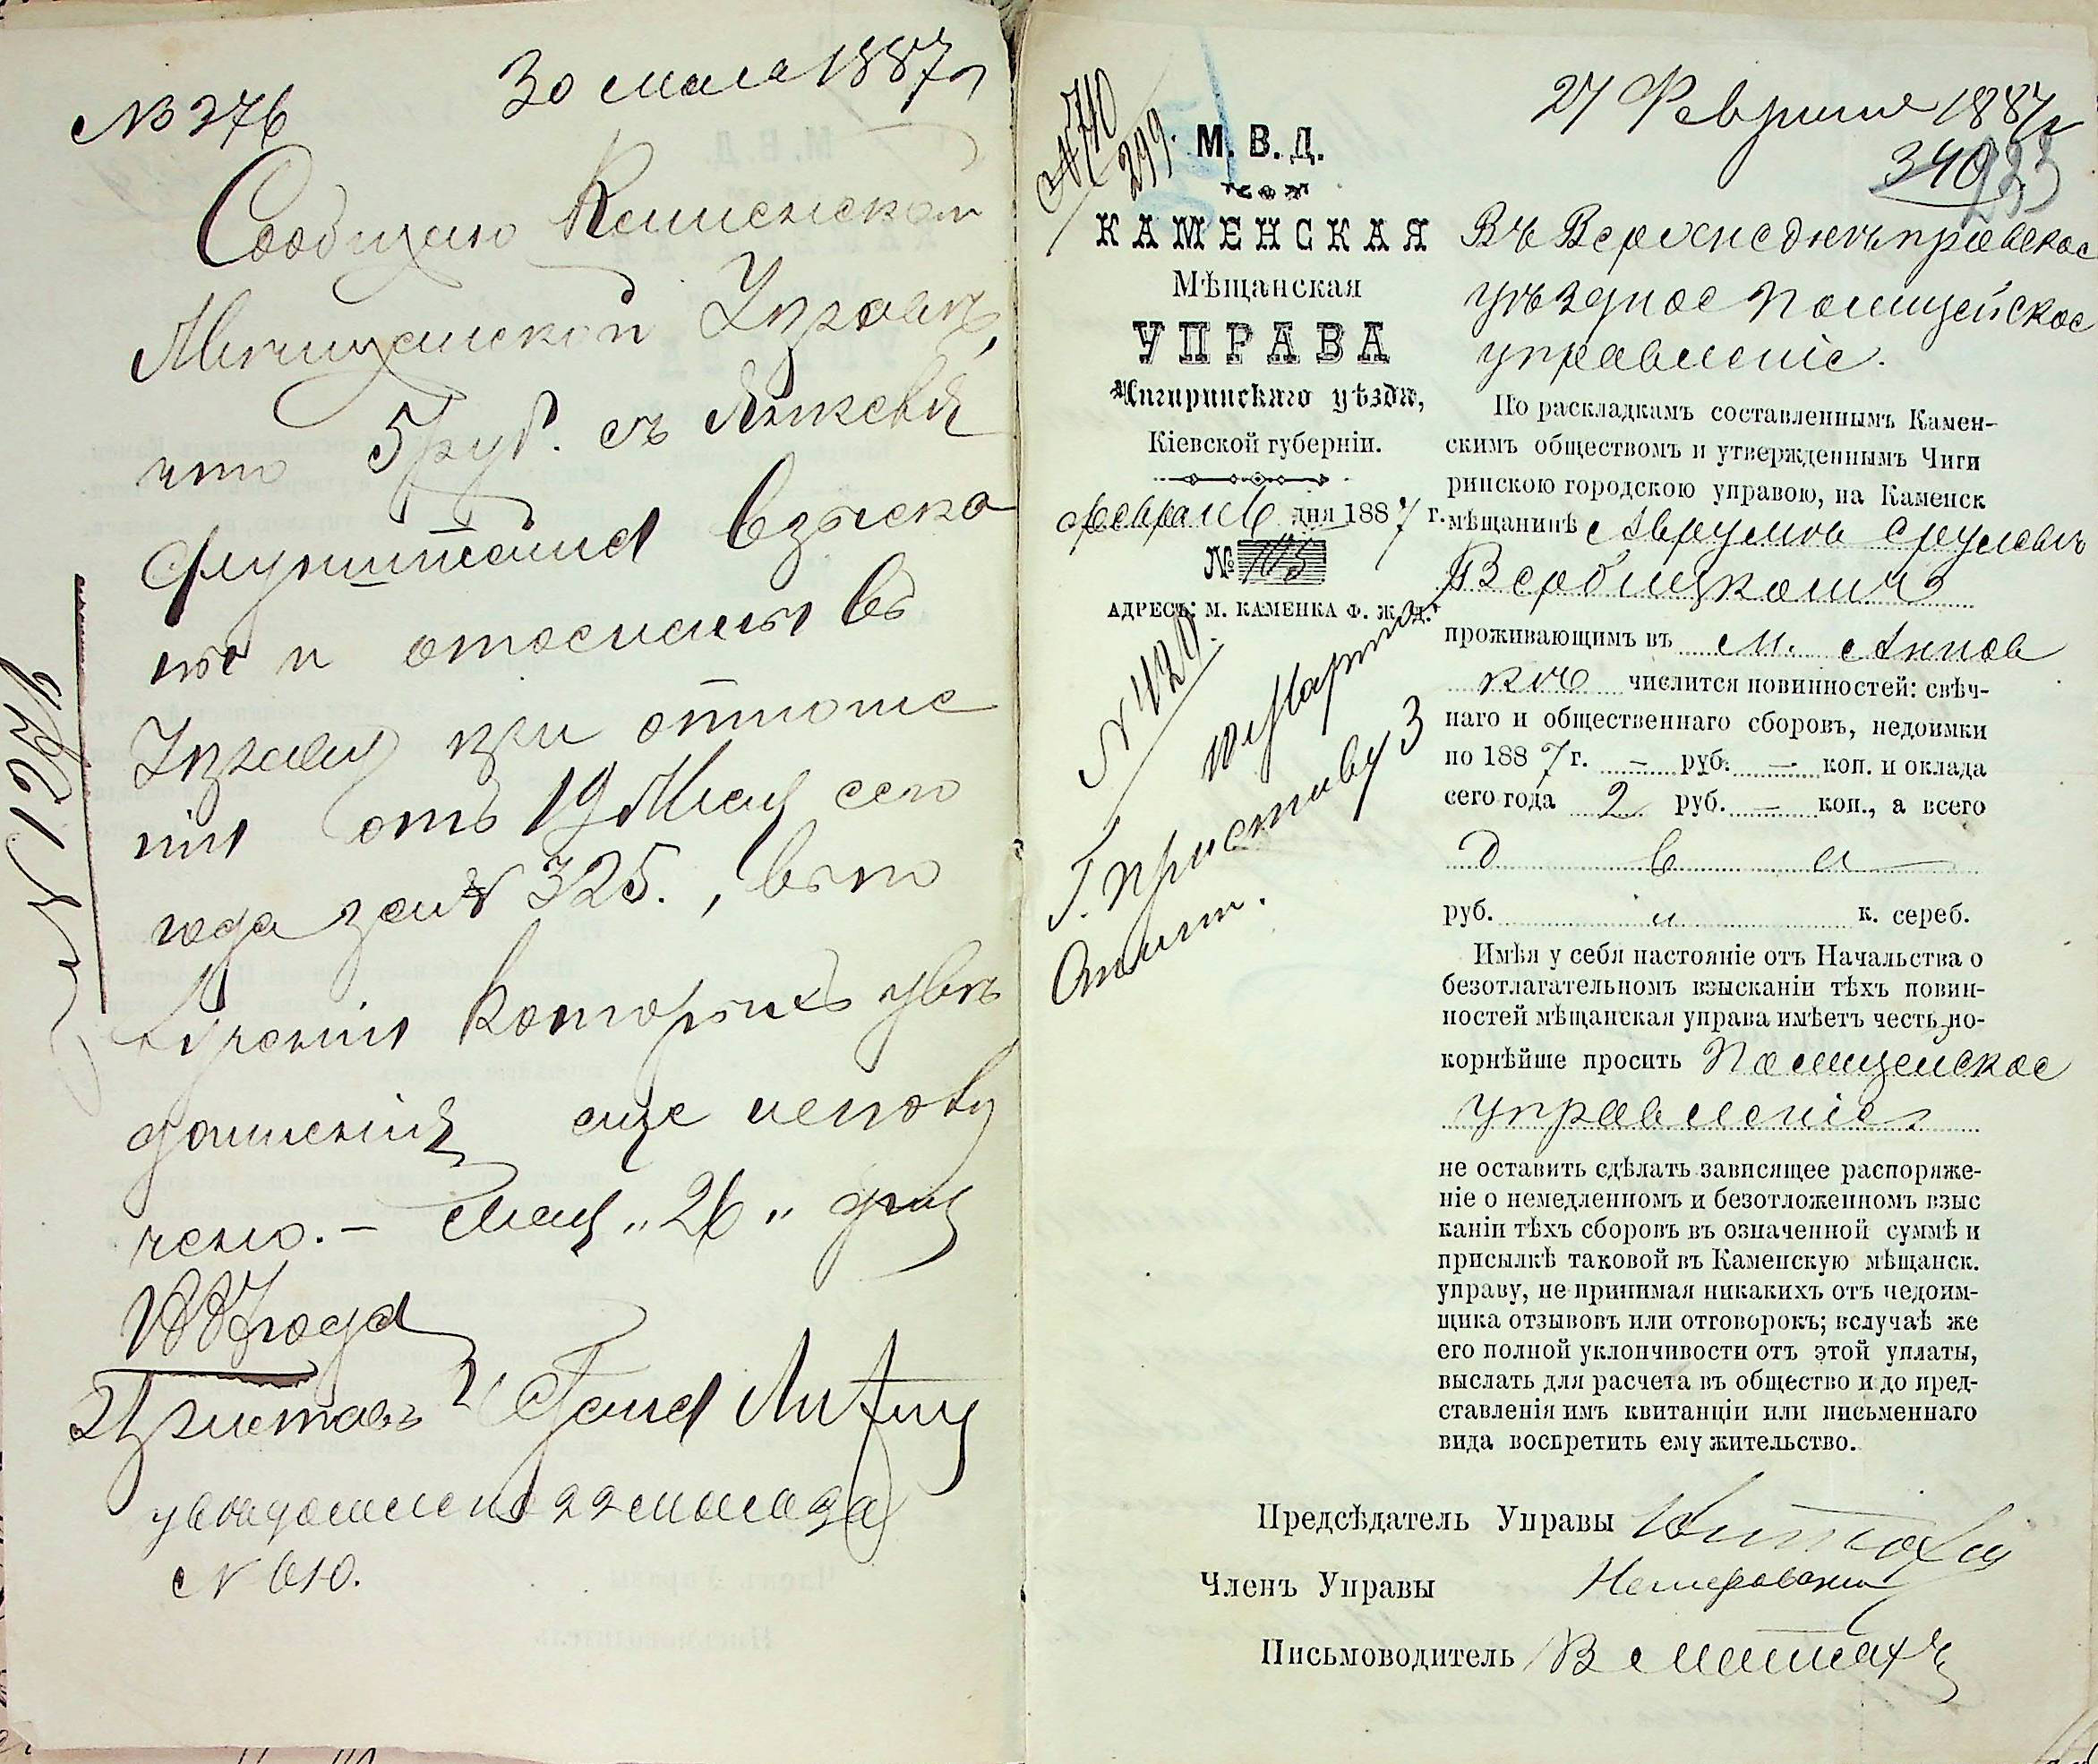 № 276
30 мая 1887 г
Сообщаю Каменской
Мѣщанской Управѣ,
что 5 руб. съ Янкеля
взыска
ны и отосланы въ
Управу при отноше
ніи отъ 19 Мая сего
года за № 325., въ по
лученіи которыхъ увѣ
домленія еще не полу
чено. – Мая „26„ дня
1887 года
Приставъ 2 Стана
увѣдомлено
№ 610.
М. В. Д.
КАМЕНСКАЯ
Мѣщанская
УПРАВА
Чигиринскаго уѣзда,
Кіевской губерніи.
февраля дня 1887 г.
№ 105
АДРЕСЪ: М. КАМЕНКА Ф. Ж. Д.
№ 429
Марта
Г. Приставу 3
Стана.
27 Февраля 1887 г
340
Въ Верхнеднѣпровское
уѣздное Полицейское
управленіе.
По раскладкамъ составленнымъ Камен-
скимъ обществомъ и утвержденнымъ Чиги
ринскою городскою управою, на Каменск
мѣщанинѣ Аврумѣ Сруловѣ
Вербицкомъ
проживающимъ въ м. Аннов
кѣ числится повинностей: свѣч-
наго и общественнаго сборовъ, недоимки
по 1887 г. – руб. – коп. и оклада
сего года 2 руб. – коп., а всего
два
руб. и к. сереб.
Имѣя у себя настояніе отъ Начальства о
безотлагательномъ взысканіи тѣхъ повин-
ностей мѣщанская управа имѣетъ честь по-
корнѣйше просить Полицейское
управленіе
не оставить сдѣлать зависящее распоряже-
ніе о немедленномъ и безотложенномъ взыс
каніи тѣхъ сборовъ въ означенной суммѣ и
присылкѣ таковой въ Каменскую мѣщанск.
управу, не принимая никакихъ отъ недоим-
щика отзывовъ или отговорокъ; вслучаѣ же
его полной уклончивости отъ этой уплаты,
выслать для расчета въ общество и до пред-
ставленія имъ квитанціи или письменнаго
вида воспретить ему жительство.
Предсѣдатель Управы
Членъ Управы Немировскій
Письмоводитель